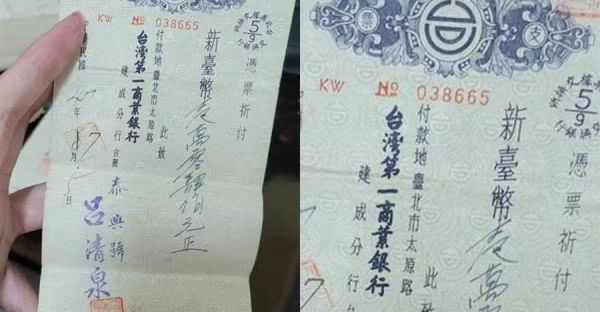 KW № 038665
憑票祈付
新臺幣 萬 佰元正
此致
付款地臺北市太原路
台灣第一商業銀行
建成分行台照
中華民國 年 月 日
泰興號
呂清泉
支票
KW № 038665
憑票祈付
新臺幣 萬
此致
付款地臺北市太原路
台灣第一商業銀行
建成分行台